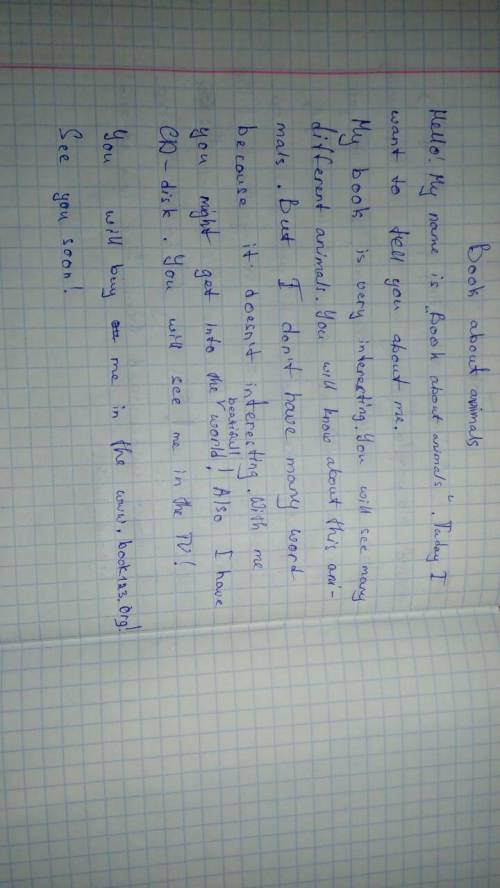 Book about animals
Hello! My name is „Book about animals". Today I
want to tell you about me.
My book is very interesting. You will see many
different animals. You will know about this ani-
mals. But I don't have many word
because it doesn't interesting. With me
you might get into the beatifull world! Also I have
CD-disk. You will see me in the TV!
You will buy me in the www.book123.org!
See you soon!